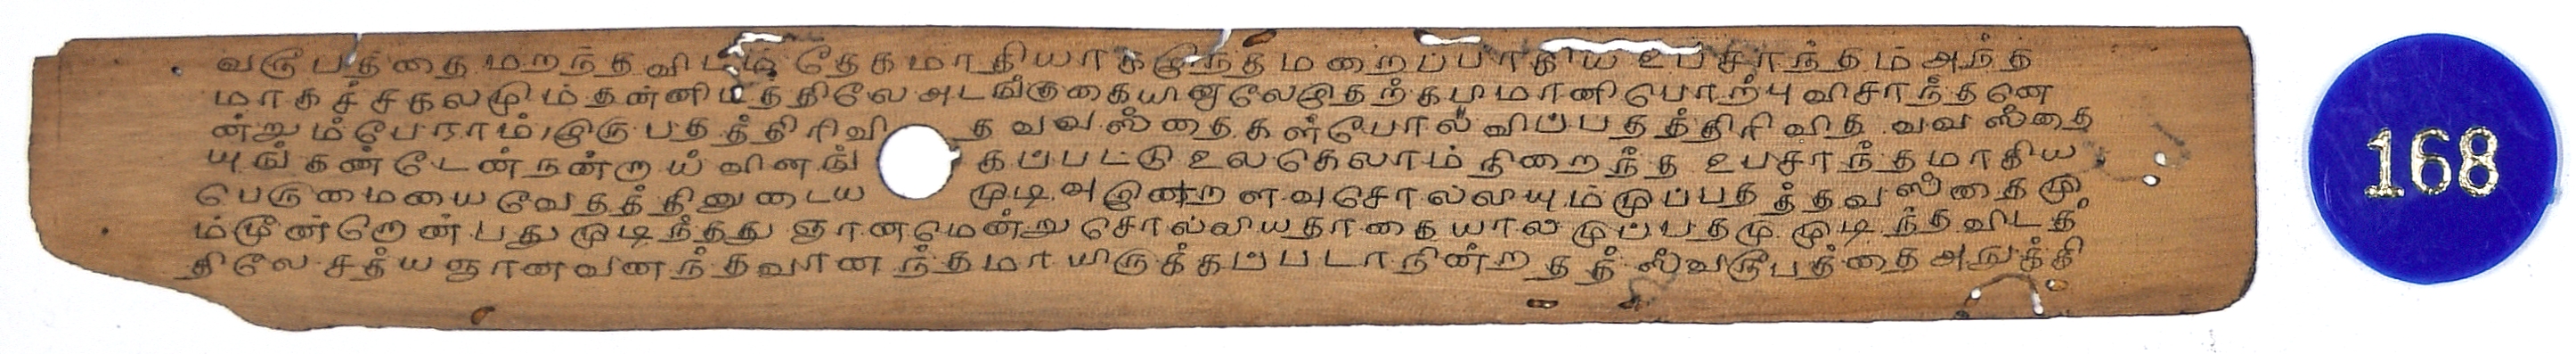 வரூபத்தை மறந்தவிடம் தேகமாதியாக்ஷந்த மறைப்பாகிய உபசாந்தம் அந்த
மாகச்சகலமும் தன்னிடத்திலே அடங்குகையினாலேஇதற்கபிமானிபொற்புவிசாந்தனெ
ன்றும்பேராம் இருபதத்திரிவி த வவஸ்தைகள்போல் விப்பதத்திரிவித வவஸ்தை
யுங்கண்டேண்நன்றாய் வினங் கப்பட்டு உலகெலாம் நிறைந்த உபசாந்தமாகிய
பெருமையை வேதத்தினுடைய முடி அளவுசொல்லியும் முப்பதத்தவஸ்தைமு
ம்மூன்றென்பது முடிந்தது ஞானமென்று சொல்லியதாகையால் முப்பதமு முடிந்தவிடத்
திலே சத்யஞானவனந்தவானந்தமாயிருக்கப்படாநின்ற தத் ஸ்வரூபத்தை அநுத்தி
168